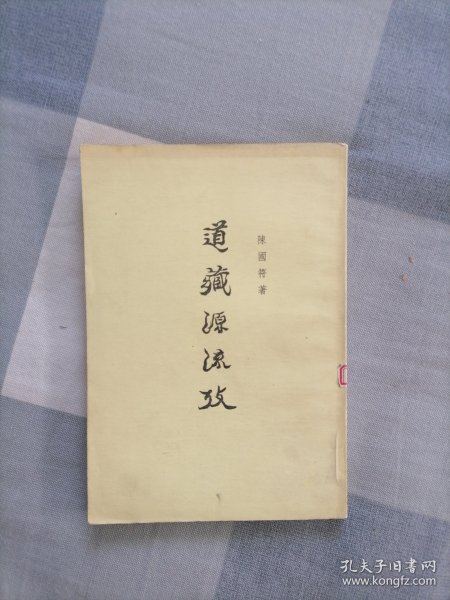 道藏源流攷
陳國符著
孔夫子旧书网
www.kongfz.com